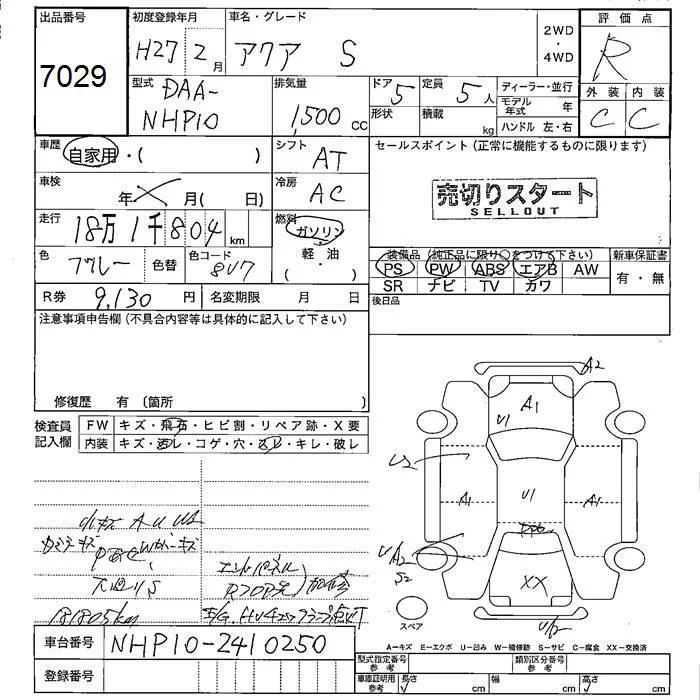 出品番号
7029
初度登録年月
H27 2月
車名・グレード
アクア S
2WD
・
4WD
評価点
R
型式
DAA-
NHP10
排気量
1,500 cc
ドア
5
形状
定員
5人
積載
kg
ディーラー・並行
モデル年式 年
ハンドル 左・右
外装
C
内装
C
車歴
自家用・( )
シフト
AT
セールスポイント(正常に機能するものに限ります)
車検
年 月( 日)
冷房
AC
売切りスタート
SELLOUT
走行
18万1千804 km
燃料
ガソリン
・
軽・油
( )
色
色替
色コード
8V7
装備品(純正品に限り○をつけて下さい)
新車保証書
PS PW ABS エアB AW
SR ナビ TV カワ
有・無
R券 9,130円
名変期限 月 日
後日品
注意事項申告欄(不具合内容等は具体的に記入して下さい)
修復歴 有(箇所
検査員
記入欄
FW キズ・飛石・ヒビ割・リペア跡・X要
内装 キズ・汚レ・コゲ・穴・スレ・キレ・破レ
小キズ A U U2
181805km
A2
A1
U1
U2
A1
U1
A1
S2
XX
スペア
A=キズ E=エクボ U=凹み W=補修跡 S=サビ C=腐食 XX=交換済
車台番号 NHP10-2410250
登録番号
型式指定番号
参考
類別区分番号
参考
車庫証明用
参考
長さ cm
幅 cm
高さ cm